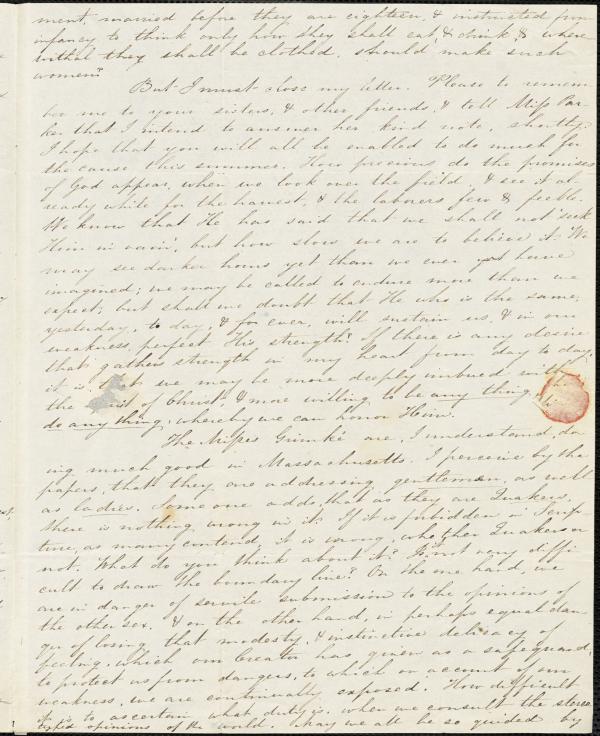 ment, married before they are eighteen, & instructed from
infancy to think only how they shall eat, & drink, & where
withal they shall be clothed, should make such
women?
But I must close my letter. Please to remem
ber me to your sisters, & other friends, & tell Miss Par
ker that I intend to answer her kind note, shortly.
I hope that you will all be enabled to do much for
the cause this summer. How precious do the promises
of God appear, when we look over the field, & see it al
ready white for the harvest, & the laborers few & feeble.
We know that He has said that we shall not 'seek
Him in vain', but how slow we are to believe it. We
may see darker hours yet than we ever yet have
imagined; we may be called to endure more than we
expect; but shall we doubt that He who is the same,
yesterday, to day, & for ever, will sustain us, & in our
weakness, perfect His strength? If there is any desire
that gathers strength in my heart from day to day,
it is that we may be more deeply imbued with
the of Christ, & more willing to be any thing,
do any thing, whereby we can honor Him.
The Misses Grimké are, I understand, do
ing much good in Massachusetts. I perceive by the
papers, that they are addressing gentlemen, as well
as ladies. Some one adds, that as they are Quakers,
there is nothing wrong in it. If it is forbidden in Scrip
ture, as many contend, it is wrong, whether Quakers or
not. What do you think about it? Is not very diffi
cult to draw the boundary line? On the one hand, we
are in danger of servile submission to the opinions of
the other sex, & on the other hand, in perhaps equal dan
ger of losing that modesty, & instinctive delicacy of
feeling, which our Creator has given as a safeguard,
to protect us from dangers, to which on account of our
weakness, we are continually exposed. How difficult
it is to ascertain what duty is, when we consult the stereo
typed opinions of the world. May we all be so guided by